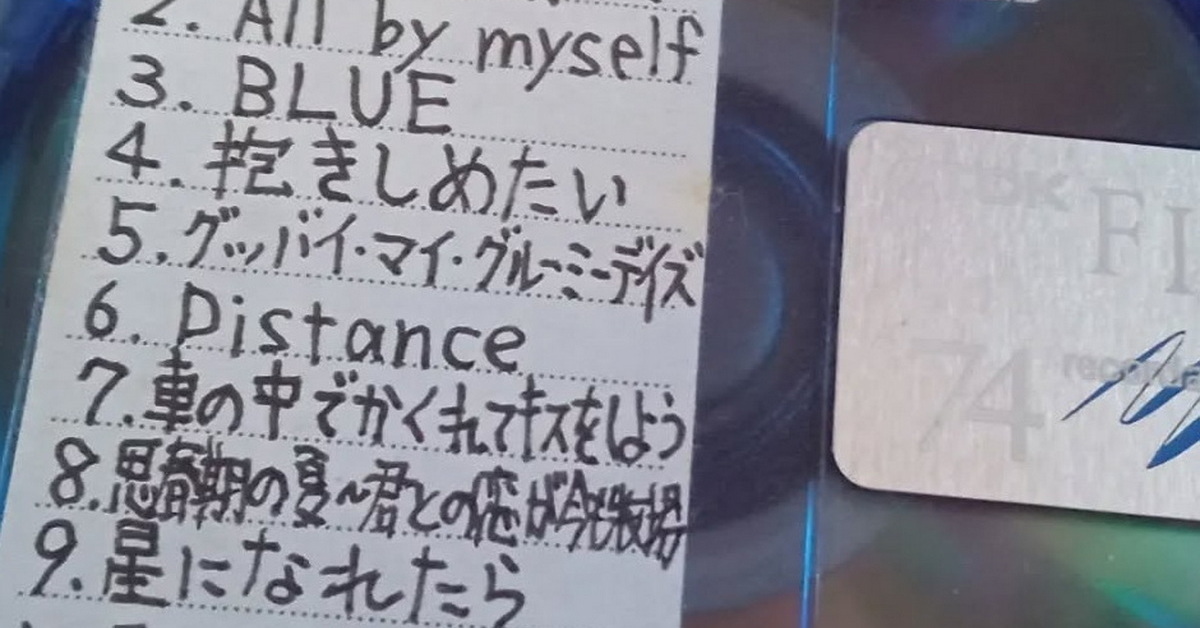 2. All by myself
3. BLUE
4. 抱きしめたい
5. グッバイ・マイ・グルーミーデイズ
6. Distance
7. 車の中でかくれてキスをしよう
8. 思春期の夏~君との恋が今も牧場
9. 星になれたら
DK
FI
74
recordable